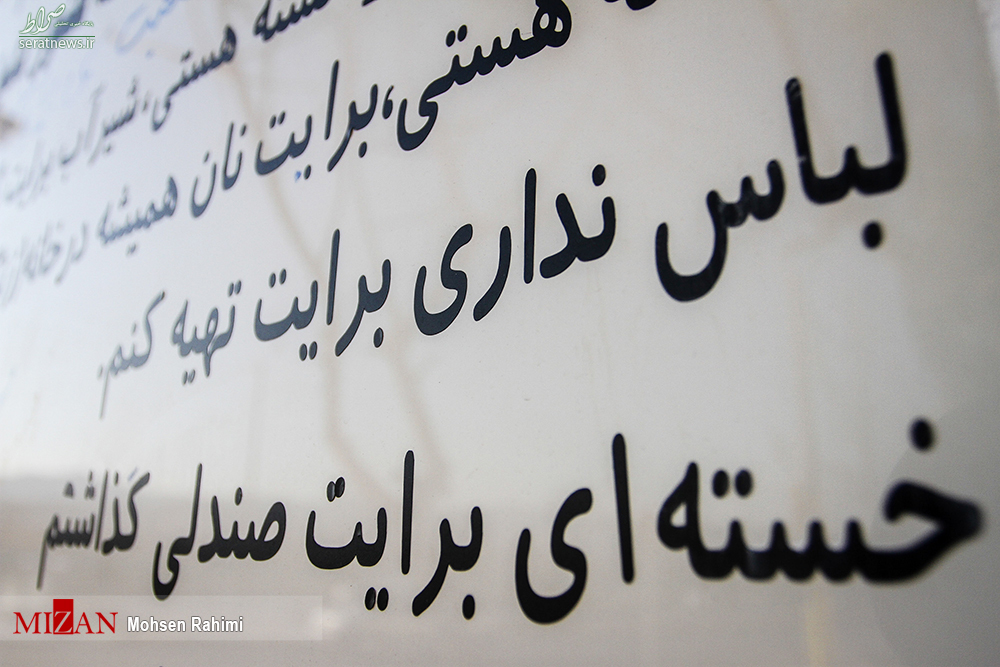 صراط
seratnews.ir
هستی، شیر آب برایت
هستی، برایت نان همیشه در خانه
لباس نداری برایت تهیه کنم.
خسته ای برایت صندلی گذاشتم
MIZAN Mohsen Rahimi